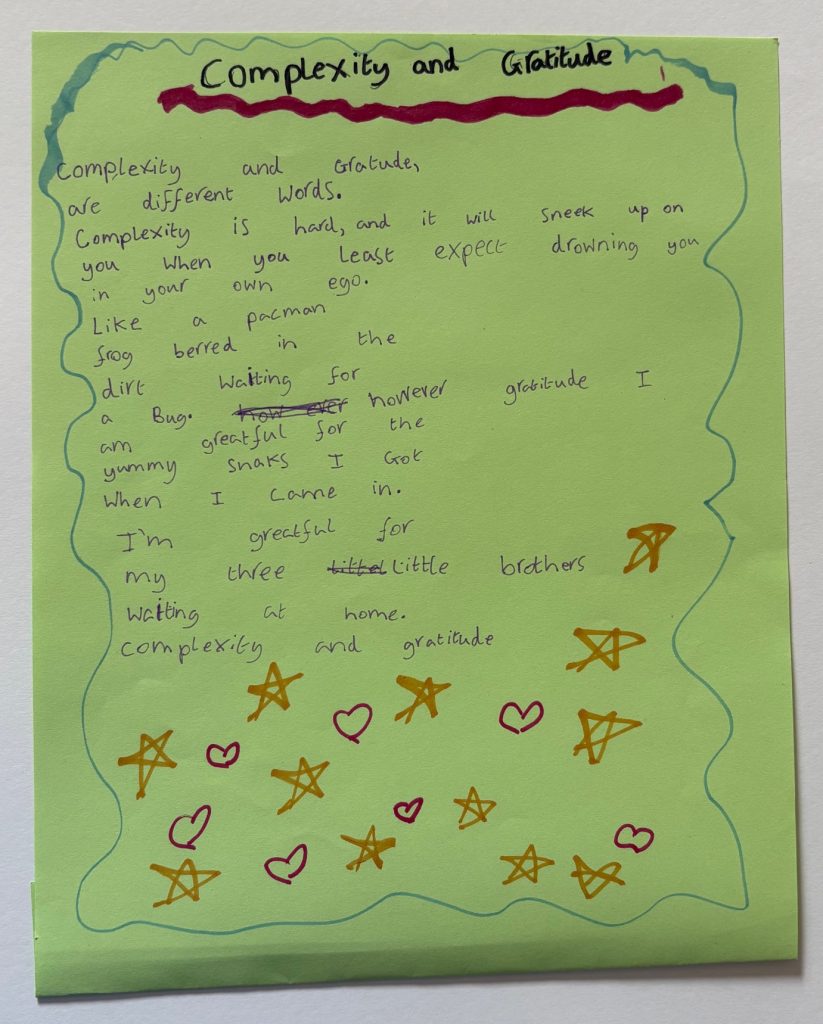 Complexity and Gratitude
Complexity and Gratude,
are different words.
Complexity is hard, and it will sneek up on
you when you least expect drowning you
in your own ego.
Like a pacman
frog berred in the
dirt waiting for
a Bug. how ever however gratitude I
am greatful for the
yummy snaks I Got
When I came in.
I'm greatful for
my three littel little brothers
waiting at home.
complexity and gratitude